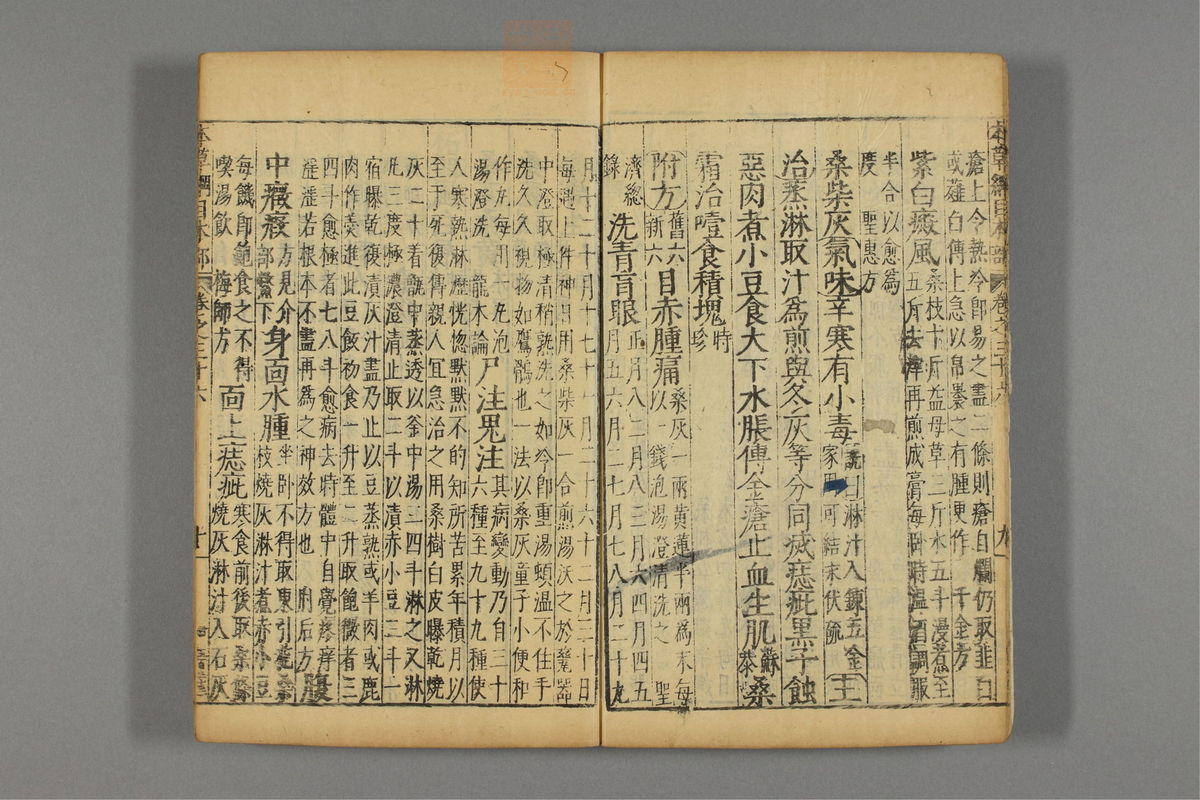 瘡上令熱冷即湯之盡二三條則瘡自爛仍取韭白
或薤白傅上急以帛裹之有腫更作 千金方
紫白癜風 桑枝十斤益母草三斤水五斗漫煮至
五斤去滓再煎成膏每卧時温酒調服
半合以愈爲
度 聖惠方
桑柴灰氣味辛寒有小毒 詵曰淋汁入鍊五金
家用可結汞伏硫 主
治蒸淋取汁爲煎與冬灰等分同滅痣疵黑子蝕
惡肉煮小豆食大下水脹傅金瘡止血生肌 蘇恭 桑
霜治噎食積塊 時珍
附方 舊六新六 目赤腫痛 桑灰一兩黃連半兩爲末每
以一錢泡湯澄清洗之 聖
濟總錄 洗青盲眼 正月八二月八三月六四月四五
月五六月二七月七八月二十九
月十二十月十七十一月二十六十二月三十日
每遇上件神日用桑柴灰一合煎湯沃之於瓷器
中澄取極清稍熱洗之如冷即重湯頓温不住手
洗久久視物如鷹鶻也一法以桑灰童子小便和
作丸每用一丸泡
湯澄洗 龍木論 尸注鬼注 其病變動乃有三十
六種至九十九種使
人寒熱淋瀝恍惚默默不的知所苦累年積月以
至于死復傳親人宜急治之用桑樹白皮曝乾燒
灰二斗着甑中蒸透以釜中湯三四斗淋之又淋
凡三度極濃澄清止取二斗以漬赤小豆二斗一
宿曝乾復漬灰汁盡乃止以豆蒸熟或羊肉或鹿
肉作羹進此豆飯初食一升至二升取飽微者三
四斗愈極者七八斗愈病去時體中自覺疼痒
淫淫若根本不盡再爲之神效方也 肘后方 腹
中癥瘕 方見介部鱉下 身面水腫 坐卧不得取東引花桑
枝燒灰淋汁煮赤小豆
每饑即飽食之不得
喫湯飲 梅師方 面上痣疵 寒食前後取桑條
燒灰淋汁入石灰